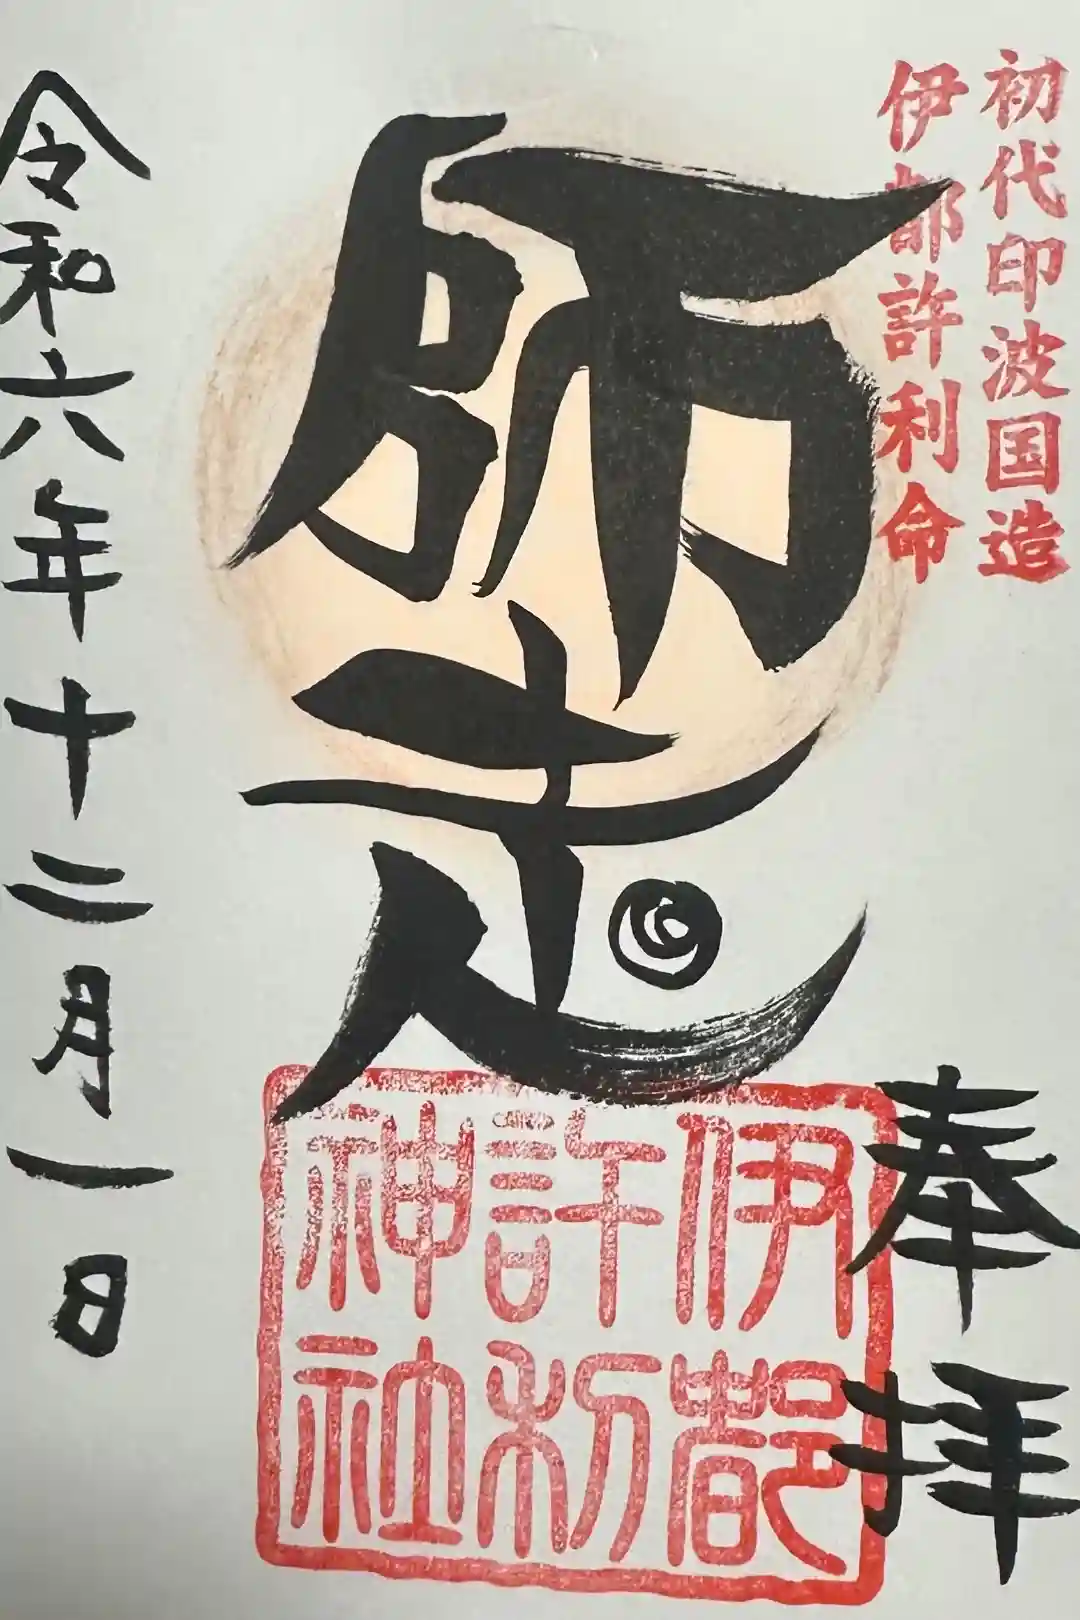 初代印波国造
伊都許利命
奉拝
師走
伊都
許利
神社
令和六年十二月一日